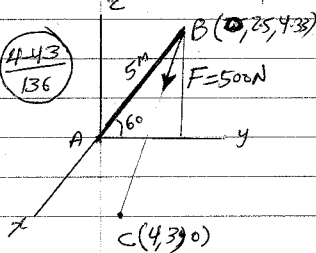 z
B (0, 2.5, 4.33)
4-43
136
5 M
F=500N
A
60
y
x
C(4,3,0)